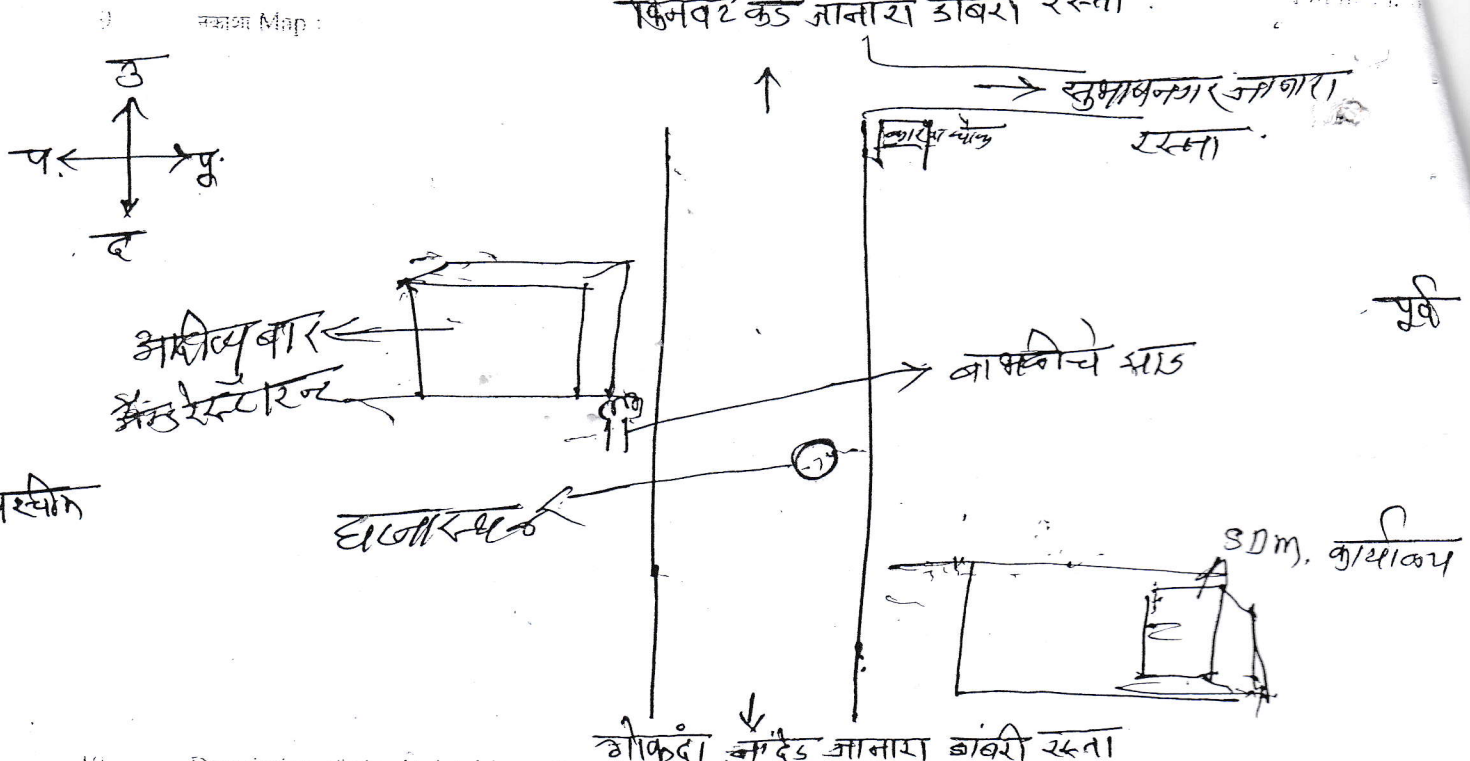 नकाशा Map :
किनवट कडे जानारा डांबरी रस्ता .
उ
प. पू.
द
सुभाषनगर जानारा
रस्ता .
चौक
पूर्व
बार
अँन्ड रेस्टॉरन्ट
बाभळीचे झाड
पश्चीम
घटनास्थळ
SDM. कार्यालय
गोकुंदा नांदेड जानारा डांबरी रस्ता